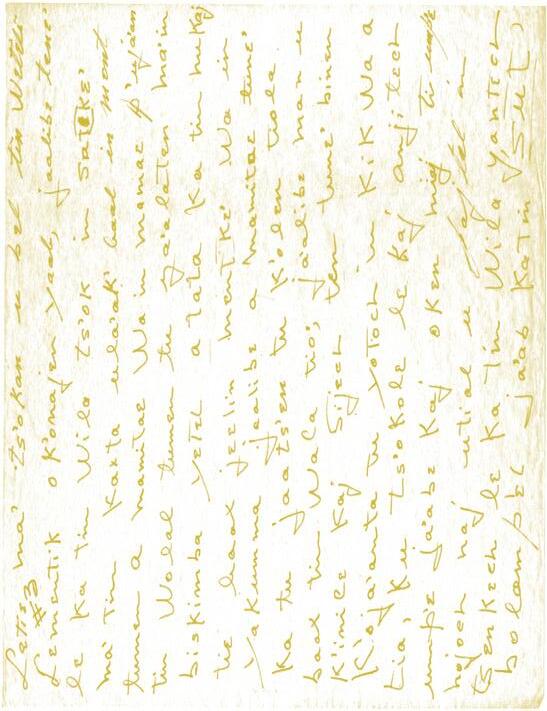 Latis ma' ts'okan u bel tin
#3
Lementik ok'onajen yaab, jaalibe tene'
le Ka tin Wila ts'ok in SATKE'
ma' tin Kaxta ulaak' baal in ment
tumen a mamitae Wa in mamae p'ujaan
tin Wolal tumen tu ya'alaten ma'in
biskimba yetel a tata Ka tin huKaj
tie baax jeelin mentKe' Wa in
yaKumma jaalibe a mamitae tune'
Ka tu jaats'en tu K'olen tiola
baax tin Wala tio; jaalibe man u
K'imile Kaj sijech ten tune' binen
K'oja'anta tu yotoch in KiK Wa a
tia' Ku ts'oKole le Kaj anji tech
ump'e ja'abe Kaj oKen mij ti
hojoch naj utial u in
tsenKech le Ka tin Wila yanTech
bolompel ja'ab Katin SUT,